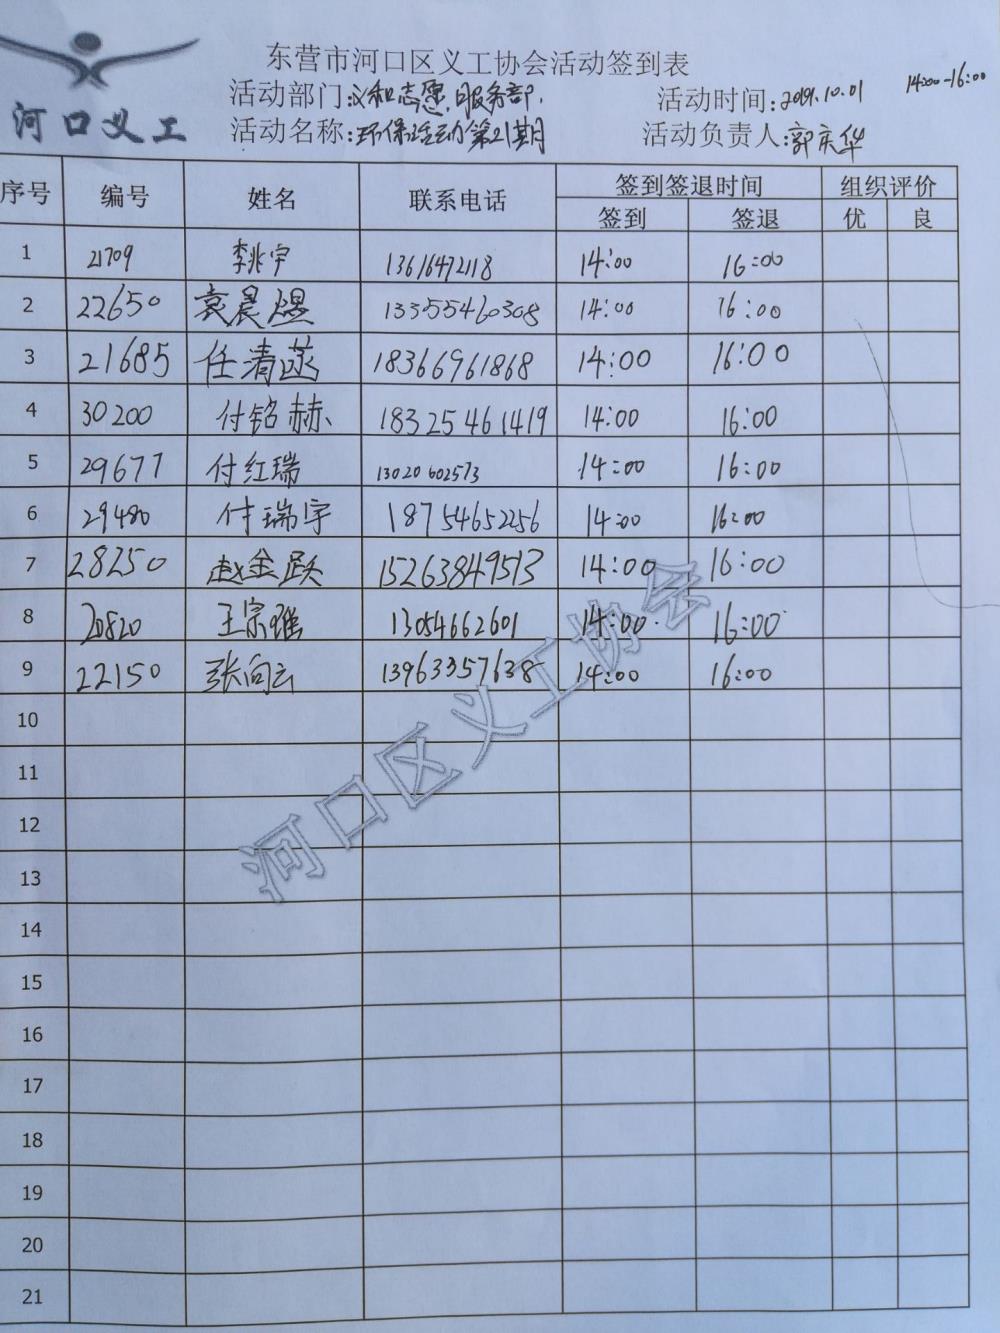 河口义工
东营市河口区义工协会活动签到表
活动部门:义和志愿服务部.
活动时间:2019.10.01 14:00-16:00
活动名称:环保活动第21期
活动负责人:郭庆华
序号 编号 姓名 联系电话 签到签退时间 组织评价
签到 签退 优 良
1 21709 李兆宇 13616472118 14:00 16:00
2 22650 袁晨煜 13355460308 14:00 16:00
3 21685 任清菡 18366961868 14:00 16:00
4 30200 付铭赫 18325461419 14:00 16:00
5 29677 付红瑞 13020602573 14:00 16:00
6 29480 付瑞宇 18754652256 14:00 16:00
7 28250 赵金跃 15263849513 14:00 16:00
8 20820 王宗 13054662601 14:00 16:00
9 22150 张向云 13963357638 14:00 16:00
10
11
12
13
14
15
16
17
18
19
20
21
河口区义工协会